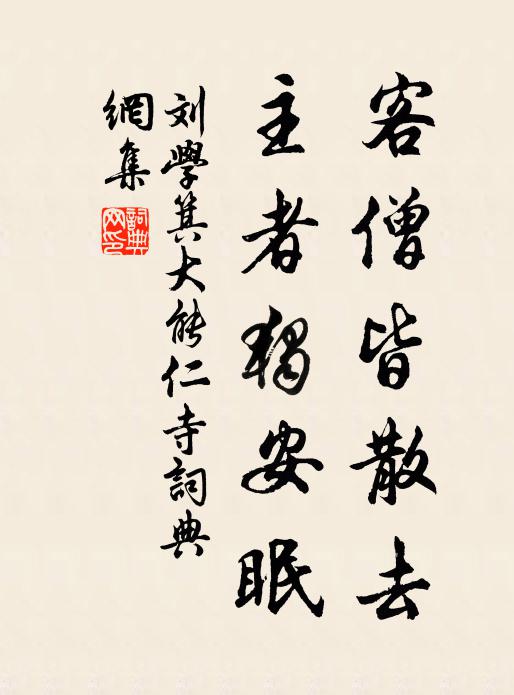 客僧皆散去
主者獨安眠
刘學箕大能仁寺詞典
網集
詞典
网印